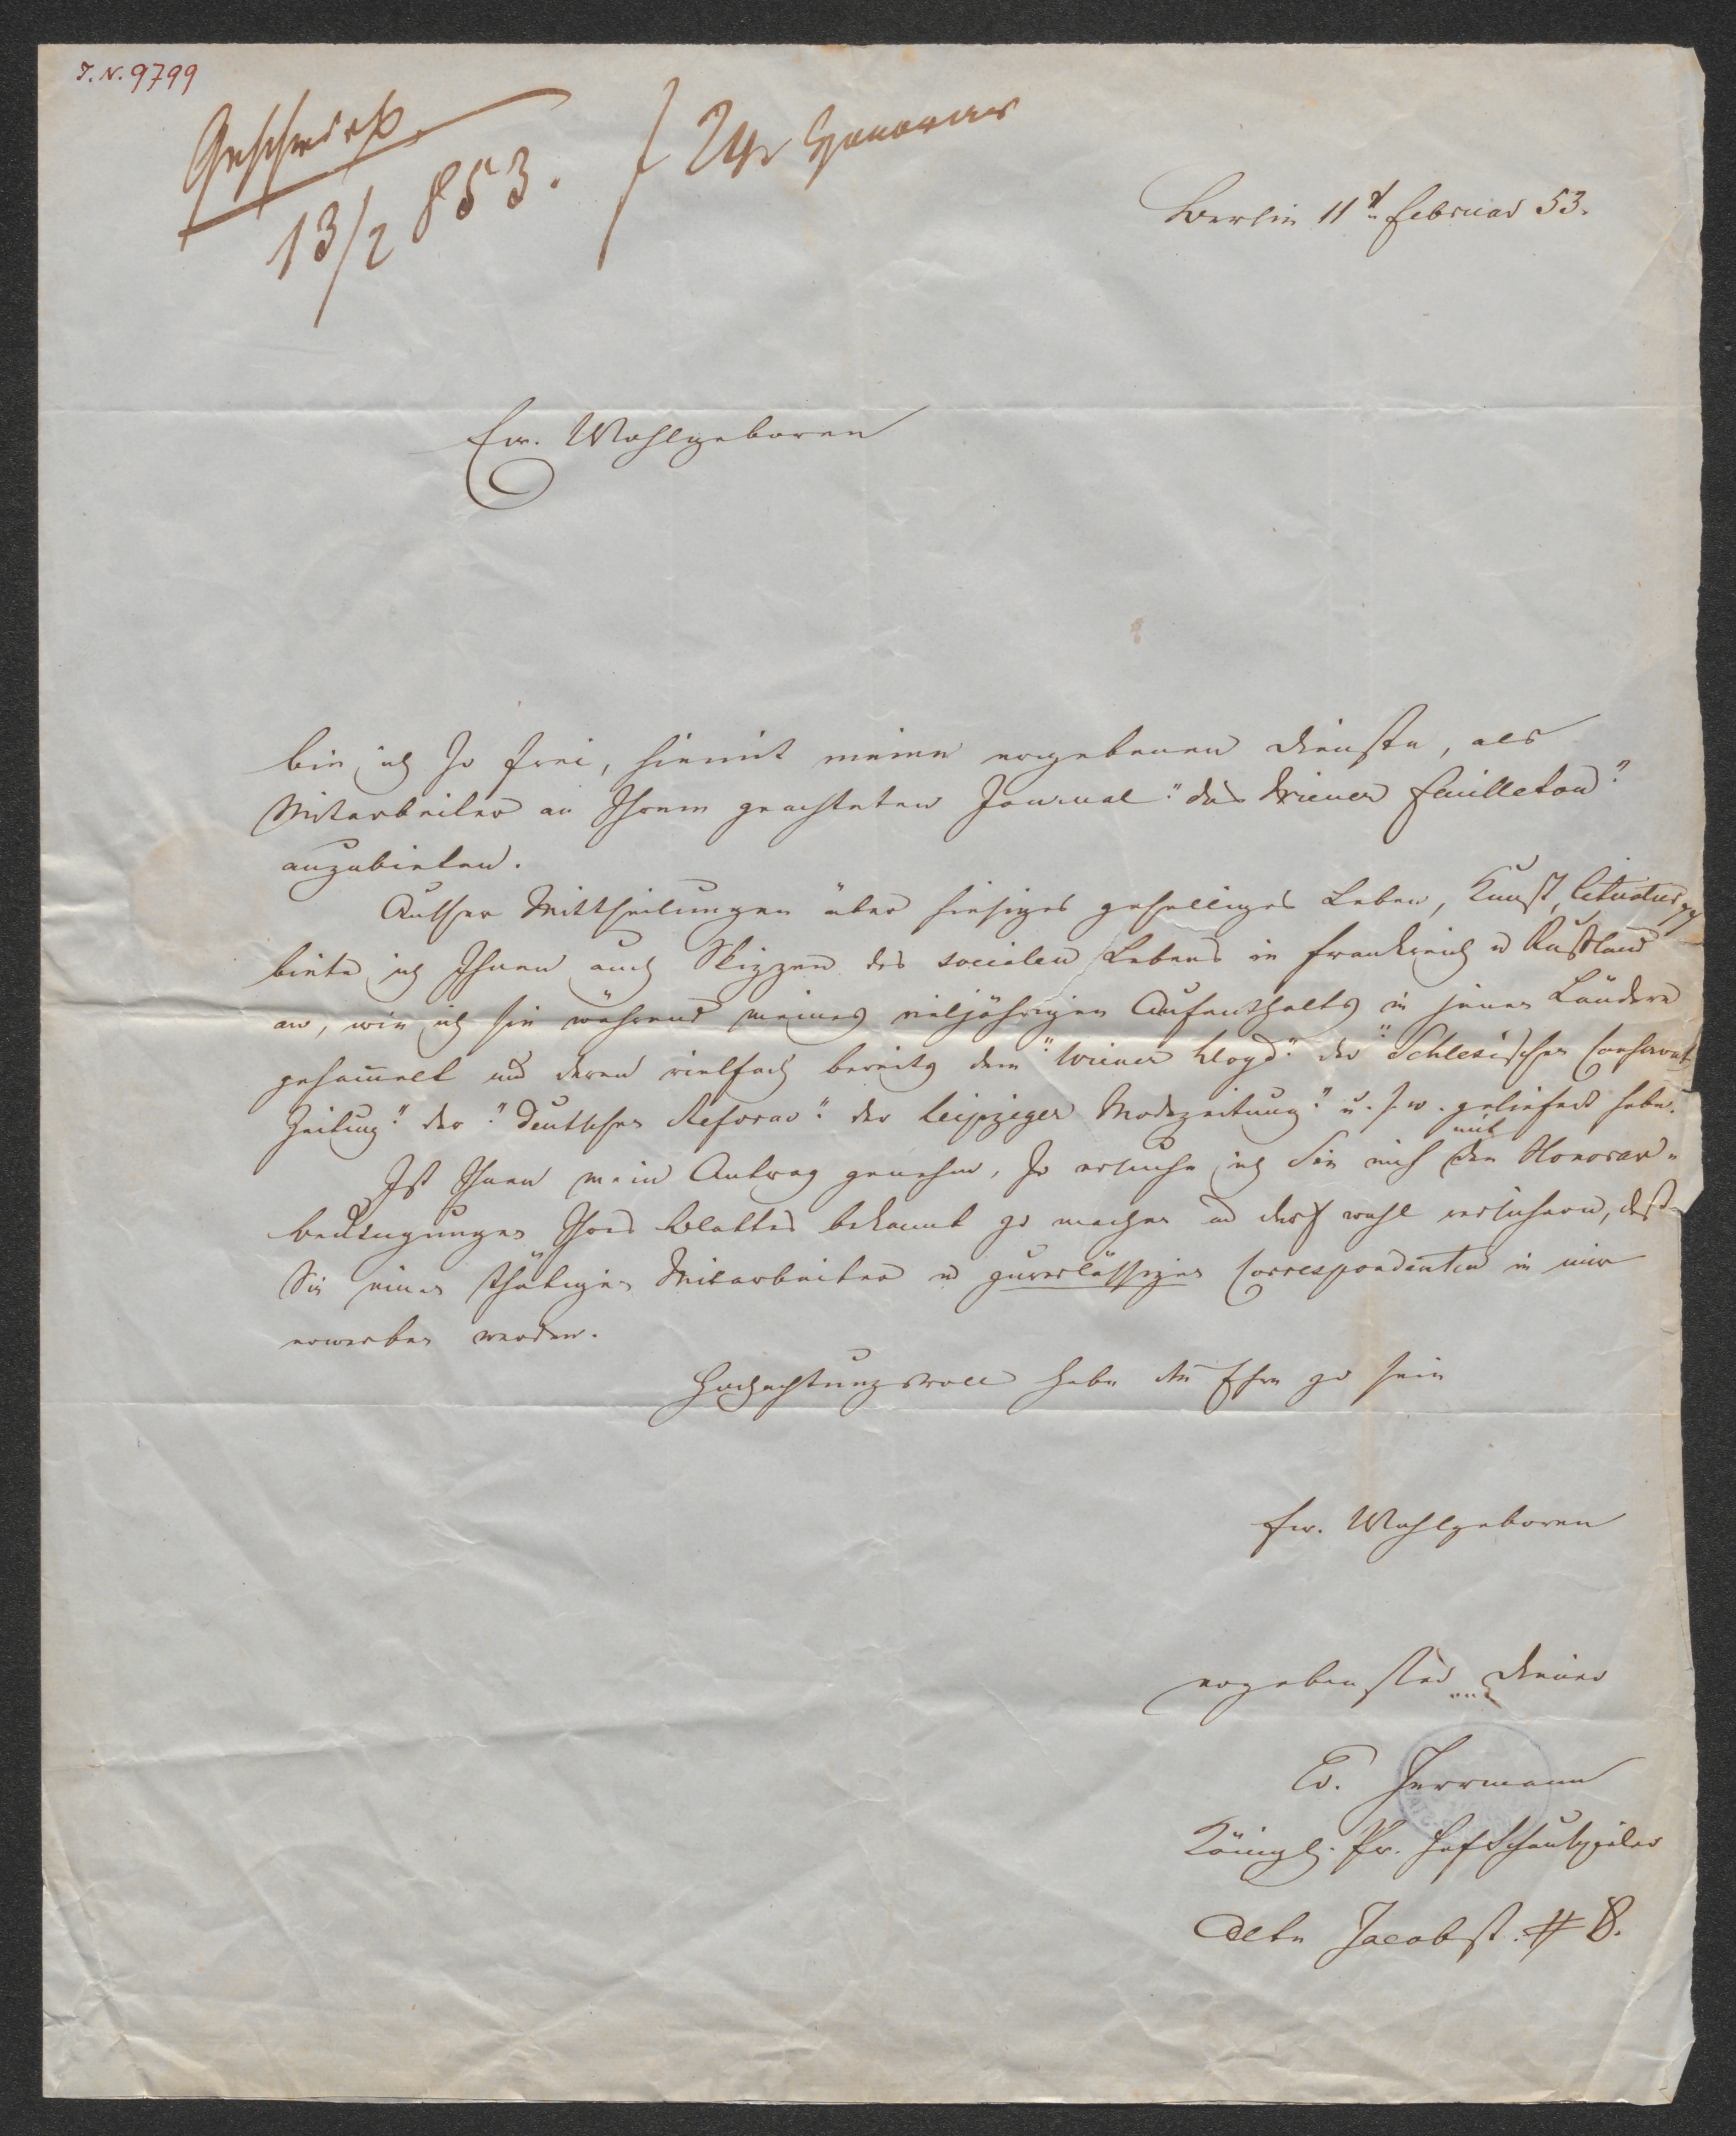 I.N. 9799
Geschrieb.
13/2 853.
f 24x Honorar
Berlin 11t Februar 53.
Ew. Wohlgeboren
bin ich so frei, hiemit meine ergebenen Dienste, als
Mitarbeiter an Ihrem geachteten Journal "das Wiener Feuilleton"
anzubieten.
Außer Mittheilungen über hiesiges geselliges Leben, Kunst, Literatur
biete ich Ihnen auch Skizzen des socialen Lebens in Frankreich u Rußland
an, wie ich sie während meines vieljährigen Aufenthalts in jenen Ländern
gesam̄elt und deren vielfach bereits dem "Wiener Lloyd" der "Schlesischen Conservat
Zeitung" der "Deutschen Reform" der Leipziger Modezeitung" u. s. w. geliefert habe.
Ist Ihnen mein Antrag genehm, so ersuche ich Sie mich mit den Honorar"
bedingungen Ihres Blattes bekannt zu machen und darf wohl versichern, daß
Sie einen thätigen Mitarbeiter u zuverlässigen Correspondenten in mir
erwerben werden.
Hochachtungsvoll habe die Ehre zu sein
Ew. Wohlgeboren
ergebenster Diener
Ed. Herrmann
Königl. Pr. Hofschauspieler
Alte Jacobst. # 8.